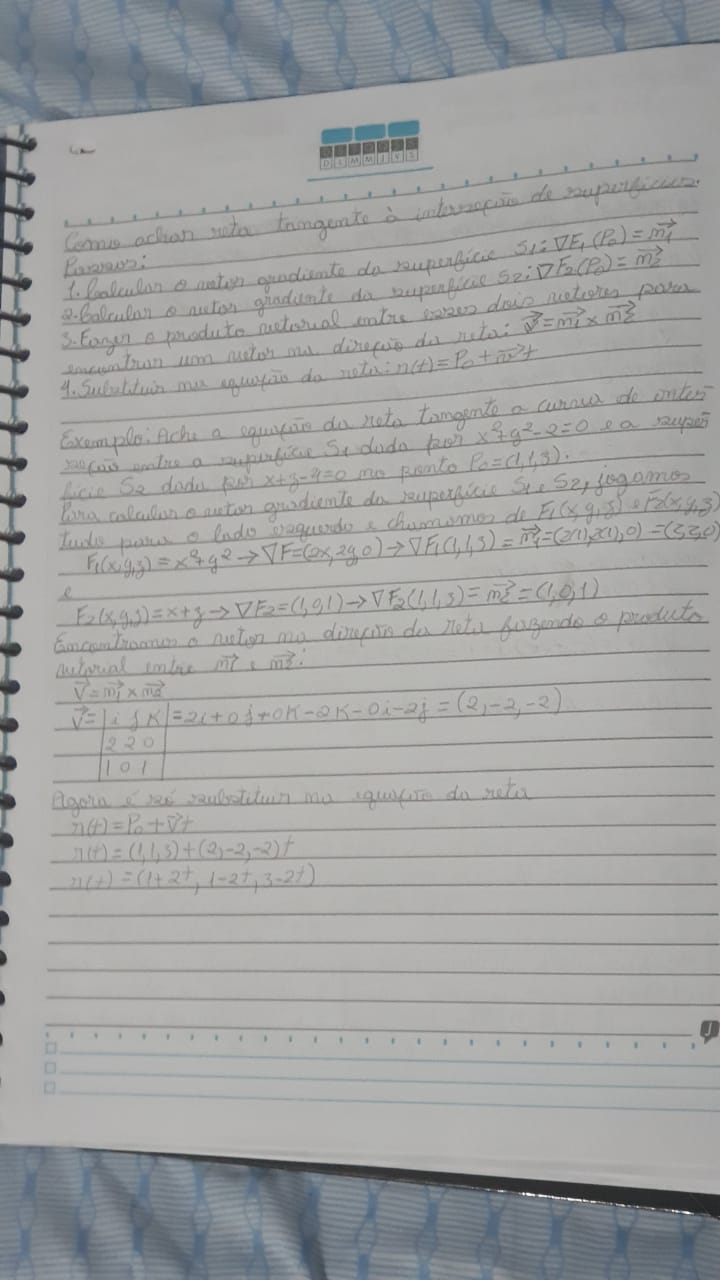 D S M M J V S
Como achar reta tangente à interseção de superfícies.
Passos:
1. Calcular o vetor gradiente da superfície S1: ∇F1(P0) = n1
2. Calcular o vetor gradiente da superfície S2: ∇F2(P0) = n2
3. Fazer o produto vetorial entre esses dois vetores para
encontrar um vetor na direção da reta: V = n1 x n2
4. Substituir na equação da reta: r(t) = P0 + vt
Exemplo: Ache a equação da reta tangente a curva de inter
seção entre a superfície S1 dada por x²+y²-2=0 e a super
fície S2 dada por x+z-4=0 no ponto P0=(1,1,3).
Para calcular o vetor gradiente da superfície S1 e S2, jogamos
tudo para o lado esquerdo e chamamos de F1(x,y,z) e F2(x,y,z)
F1(x,y,z) = x²+y² → ∇F=(2x,2y,0) → ∇F1(1,1,3) = n1=(2(1),2(1),0) = (2,2,0)
e
F2(x,y,z)=x+z → ∇F2=(1,0,1) → ∇F2(1,1,3) = n2 = (1,0,1)
Encontramos o vetor na direção da reta fazendo o produto
vetorial entre n1 e n2:
V = n1 x n2
V = |i j K| = 2i+0j+0K-2K-0i-2j = (2,-2,-2)
|2 2 0|
|1 0 1|
Agora é só substituir na equação da reta
r(t) = P0 + Vt
r(t) = (1,1,3)+(2,-2,-2)t
r(t) = (1+2t, 1-2t, 3-2t)